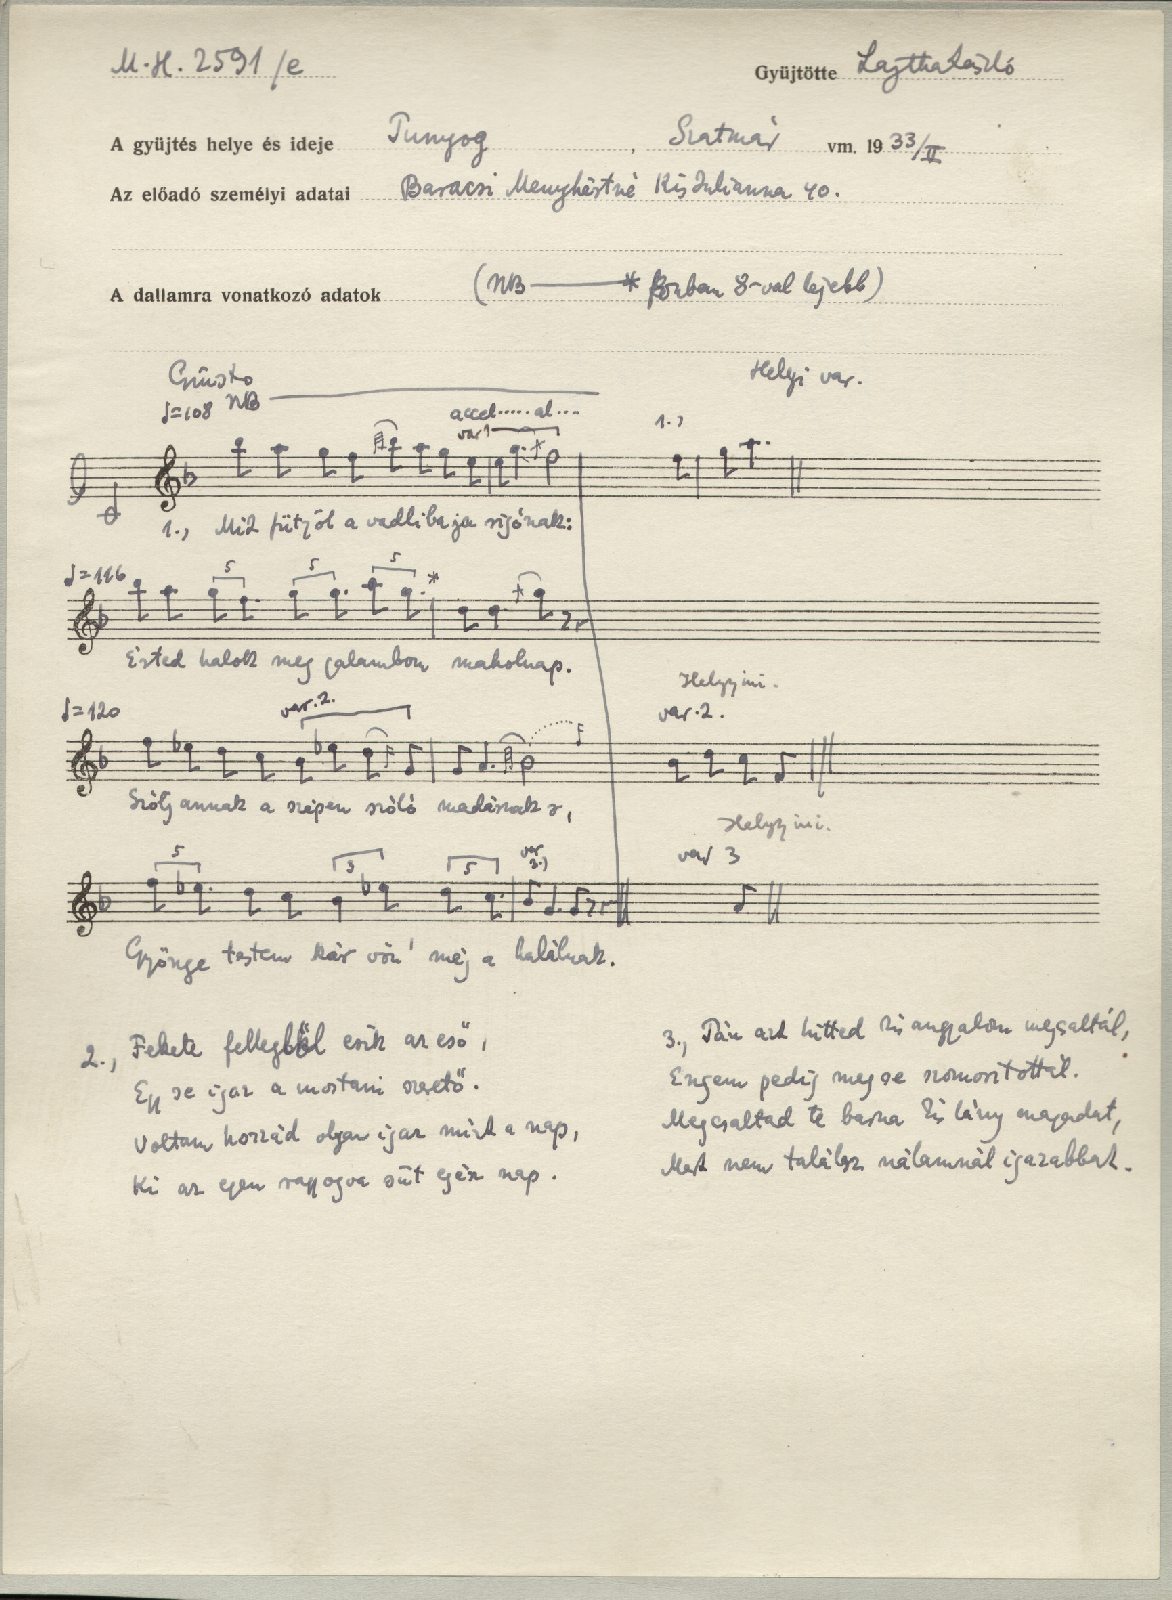 M.H. 2591/e
Gyüjtötte Lajtha László
A gyüjtés helye és ideje Tunyog, Szatmár vm. 1933/II
Az előadó személyi adatai Baracsi Menyhértné Kis Julianna 40.
A dallamra vonatkozó adatok (NB * fonban 8-val lejebb)
Giusto
Helyi var.
♩=108 NB
accel......al...
var 1
1.,
1., Mit fütyöl a vadliba ja sijónak:
♩=116 5 5 5 *
Érted halok meg galambom maholnap.
♩=120 var.2.
var.2.
Szóljannak a szépen szóló madárnak
var 3
5 3 5 var 3.)
Gyönge testem kár vón' még a halálnak.
2., Fekete fellegből esik az eső,
Egy se igaz a mostani szerető.
Voltam hozzád olyan igaz mint a nap,
Ki az egen ragyogva süt egész nap.
3., Tán azt hitted kis angyalom megcsaltál,
Engem pedig meg se szomorítottál.
Megcsaltad te barna kis lány magadat,
Mert nem találsz nálamnál igazabbat.